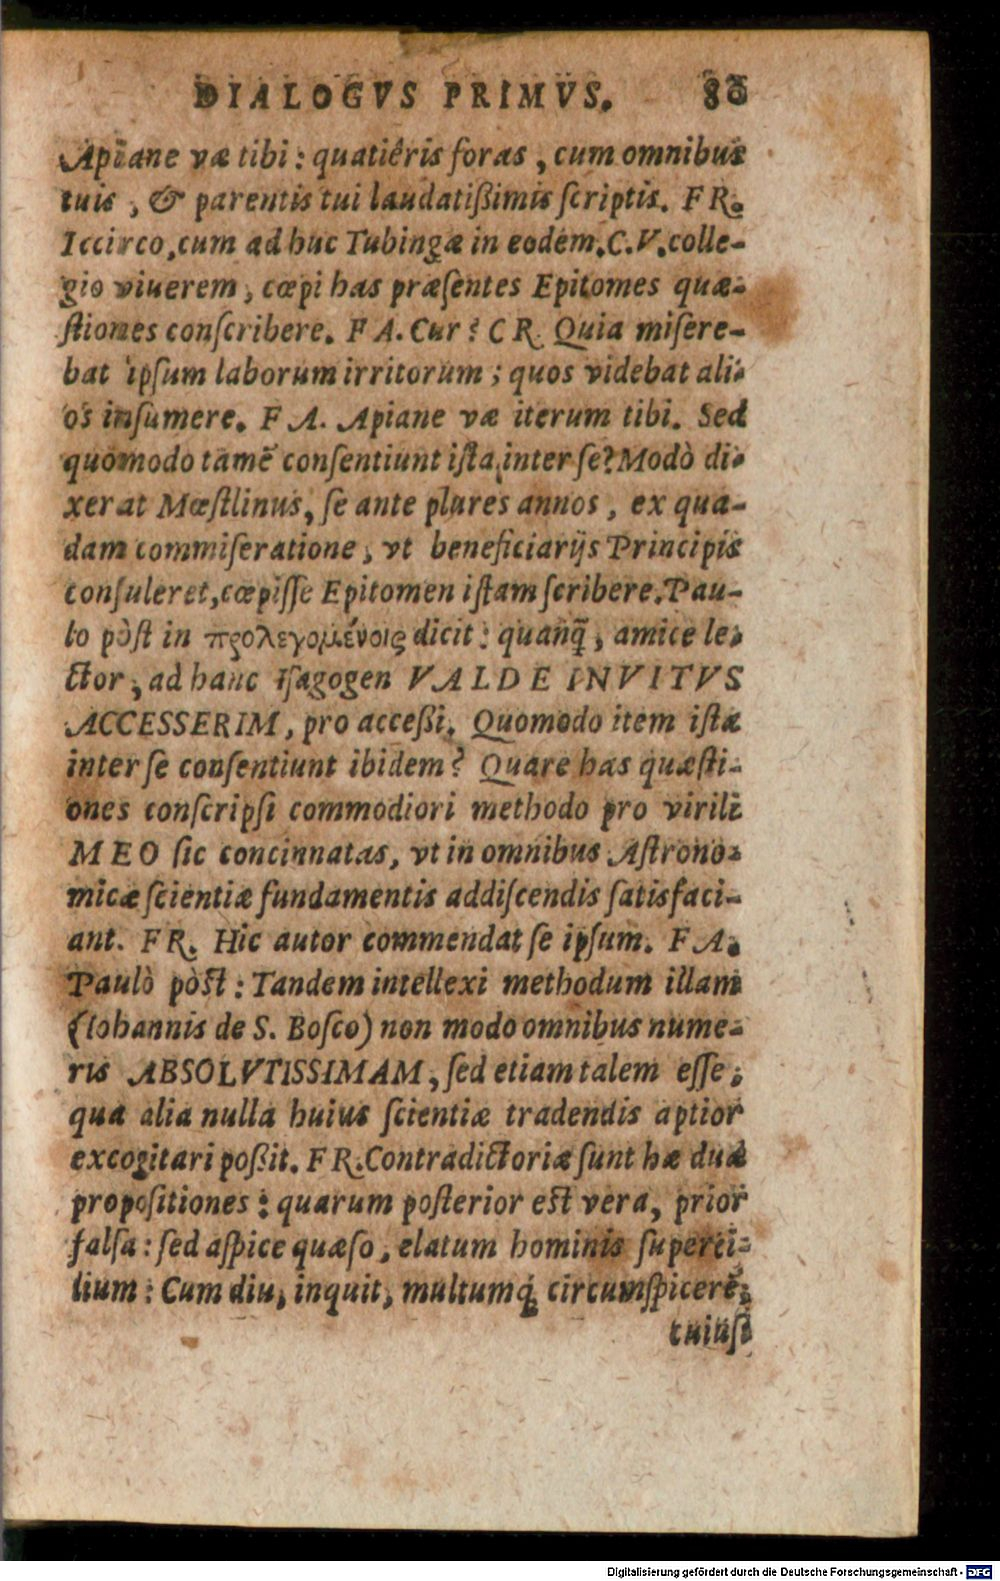 DIALOGVS PRIMVS. 80
Apiane væ tibi: quatiêris foras, cum omnibus
tuis, & parentis tui laudatißimis ſcriptis. FR.
Iccirco, cum adhuc Tubingæ in eodem. C. V. colle-
gio viuerem, cœpi has præſentes Epitomes quæ-
ſtiones conſcribere. FA. Cur? CR. Quia miſere-
bat ipſum laborum irritorum; quos videbat ali-
os inſumere. FA. Apiane væ iterum tibi. Sed
quomodo tamẽ conſentiunt iſta inter ſe? Modò di-
xerat Mœſtlinus, ſe ante plures annos, ex qua-
dam commiſeratione, vt beneficiarijs Principis
conſuleret, cœpiſſe Epitomen iſtam ſcribere. Pau-
lo pòſt in προλεγομένοις dicit: quanq̃, amice le-
ctor, ad hanc Iſagogen VALDE INVITVS
ACCESSERIM, pro acceßi. Quomodo item iſtæ
inter ſe conſentiunt ibidem? Quare has quæſti-
ones conſcripſi commodiori methodo pro virili
MEO ſic concinnatas, vt in omnibus Aſtrono-
micæ ſcientiæ fundamentis addiſcendis ſatisfaci-
ant. FR. Hic autor commendat ſe ipſum. FA.
Paulò pòſt: Tandem intellexi methodum illam
(Iohannis de S. Boſco) non modo omnibus nume-
ris ABSOLVTISSIMAM, ſed etiam talem eſſe,
qua alia nulla huius ſcientiæ tradendis aptior
excogitari poßit. FR. Contradictoriæ ſunt hæ duæ
propoſitiones: quarum poſterior eſt vera, prior
falſa: ſed aſpice quæſo, elatum hominis ſuperci-
lium: Cum diu, inquit, multumq́; circumſpicerẽ,
cuiuſ
Digitalisierung gefördert durch die Deutsche Forschungsgemeinschaft - DFG